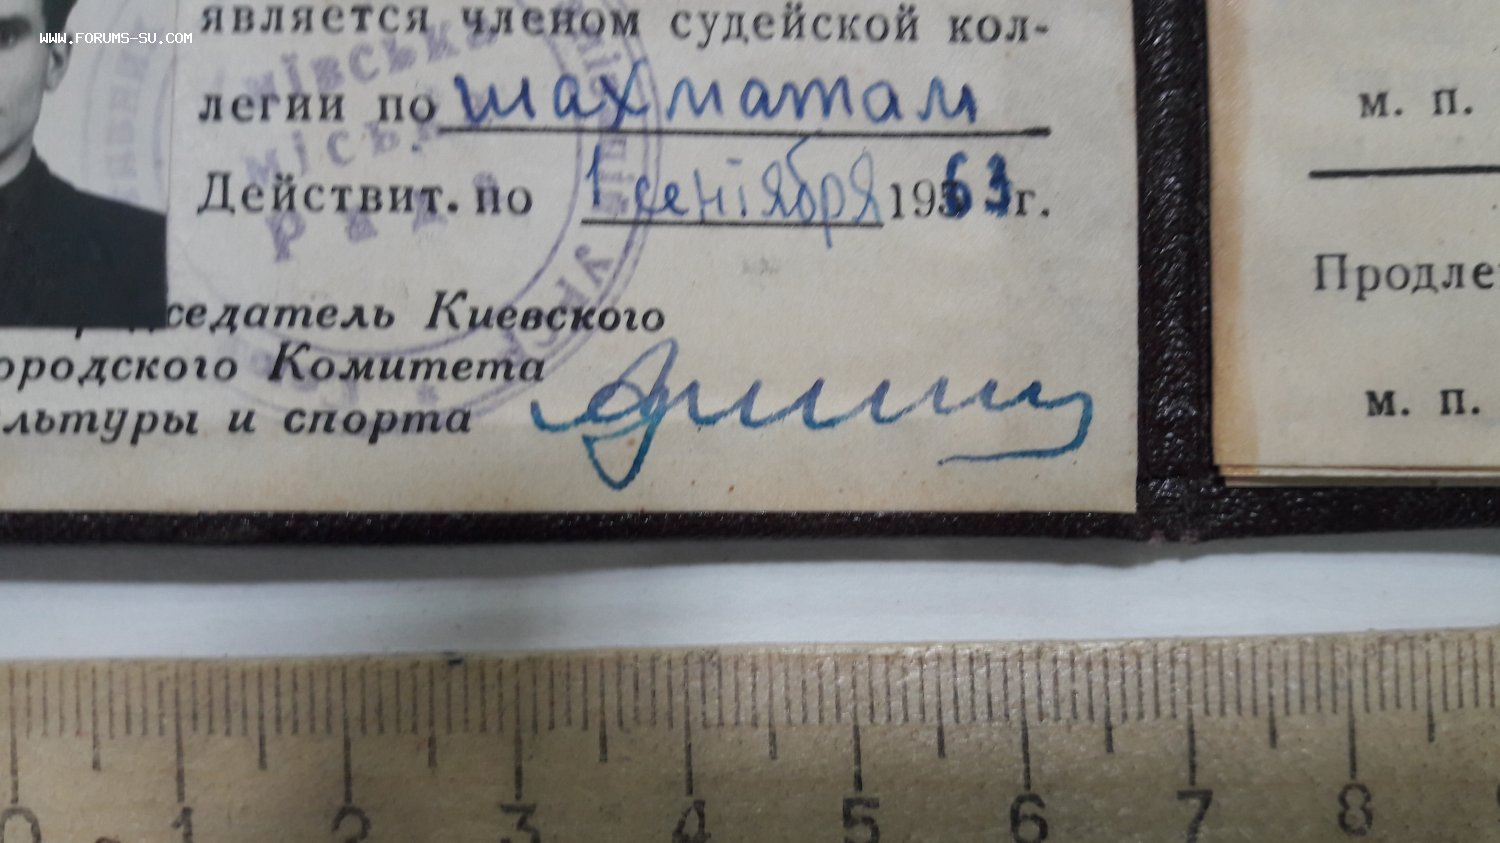 WWW.FORUMS-SU.COM
является членом судейской кол-
легии по шахматам
Действит. по 1 сентября 1963 г.
седатель Киевского
ородского Комитета
льтуры и спорта
м. п.
Продле
м. п.
київська
міська
рада
УРСР
0 1 2 3 4 5 6 7 8